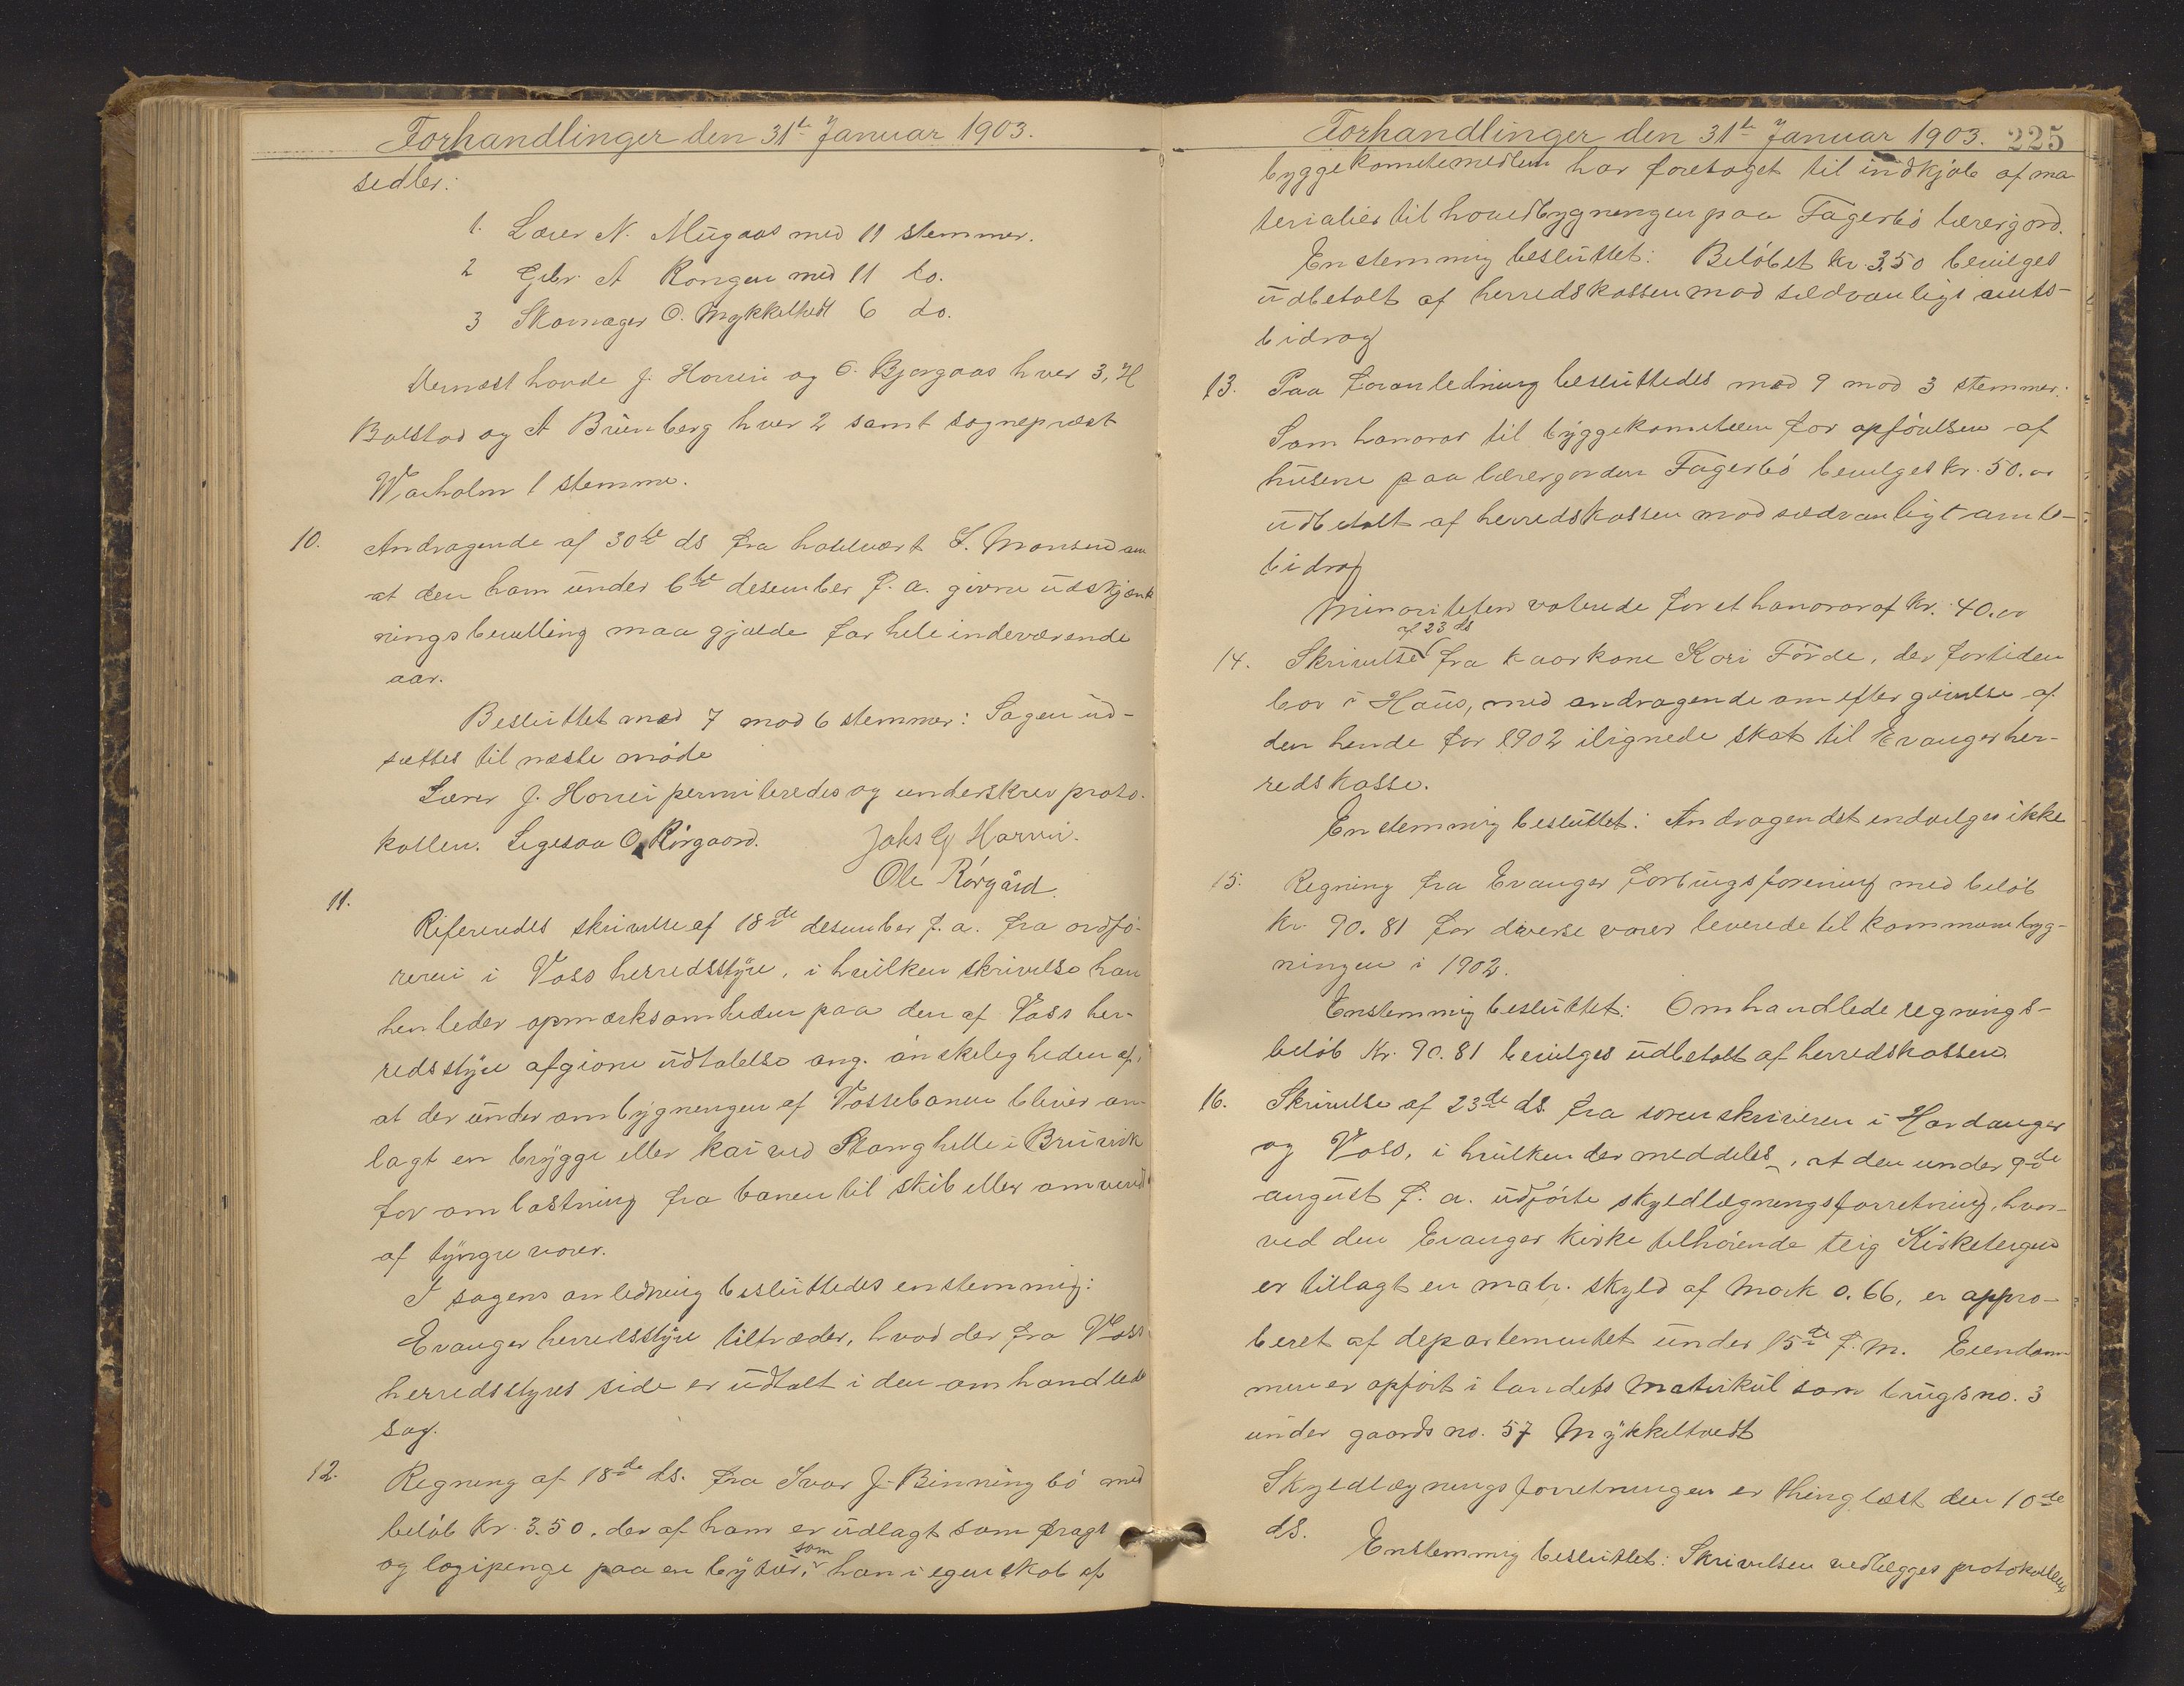 Forhandlinger den 31te Januar 1903.
sedler:
1. Lærer N. Mugaas med 11 stemmer.
2 Gbr. A Rongen med 11 do.
3 Skomager O. Mykkeltvedt 6 do.
Dernæst havde J. Horvei og O. Bjørgaas hver 3, H
Bolstad og A Brunborg hver 2 samt sogneprest
Warholm 1 stemme.
10. Andragende af 30te ds fra hotelvært S. Monsen om
at den ham under 6te desember f. a. givne udskjænk
ningsbevilling maa gjælde for hele indeværende
aar.
Besluttet med 7 mod 6 stemmer: Sagen ud-
sættes til næste møde
Lærer J. Horvei permiteredes og underskrev proto-
kollen. Ligesaa O. Rørgaard. Johs G Horvei.
Ole Rørgård.
11.
Refereredes skrivelse af 18de desember f. a. fra ordfø-
reren i Voss herredsstyre, i hvilken skrivelse han
henleder opmærksomheden paa den af Voss her-
redsstyre afgivne udtalelse ang. ønskeligheden af,
at der under ombygningen af Vossebanen bliver an-
lagt en brygge eller kai ved Stanghelle i Bruvik
for omlastning fra banen til skib eller omvendt
af tyngre varer.
I sagens anledning besluttedes enstemmig:
Evanger herredsstyre tiltræder, hvad der fra Voss
herredsstyres side er udtalt i den omhandlede
sag.
12. Regning af 18de ds. fra Ivar J. Binningbø med
beløb Kr. 3.50, der af ham er udlagt som fragt
og logipenge paa en bytur, som han i egenskab af
Forhandlinger den 31te Januar 1903. 225
byggekomitemedlem har foretaget til indkjøb af ma
terialier til hovedbygningen paa Fagerbø lærergord.
Enstemmig besluttet: Beløbet kr. 3.50 bevilges
udbetalt af herredskassen mod sædvanligt amts-
bidrag
13. Paa foranledning besluttedes med 9 mod 3 stemmer:
Som honorar til byggekomiteen for opførelsen af
husene paa lærergorden Fagerbø bevilges kr. 50.00
udbetalt af herredskassen mod sædvanligt amts-
bidrag
Minoriteten voterede for et honorar af kr. 40.00
af 23 ds
14. Skrivelse fra kaarkone Kari Førde, der fortiden
bor i Haus, med andragende om eftergivelse af
den hende for 1902 ilignede skat til Evanger her-
redskasse.
Enstemmig besluttet: Andragendet indvilges ikke
15. Regning fra Evanger forbrugsforening med beløb
Kr. 90.81 for diverse varer leverede til kommunebyg-
ningen i 1902.
Enstemmig besluttet: Omhandlede regnings-
beløb Kr. 90.81 bevilges udbetalt af herredskassen.
16. Skrivelse af 23de ds fra sorenskriveren i Hardanger
og Voss, i hvilken der meddeles, at den under 9de
august f. a. udførte skyldlægningsforretning, hvor-
ved den Evanger kirke tilhørende teig Kirketeigen
er tillagt en matr. skyld af Mark 0.66, er appro-
beret af departementet under 15de f. m. Eiendom
men er opført i landets Matrikul som brugsno. 3
under gaards no. 57 Mykkeltvedt
Skyldlægningsforretningen er thinglæst den 10de
ds.
Enstemmig besluttet: Skrivelsen vedlægges protokollen